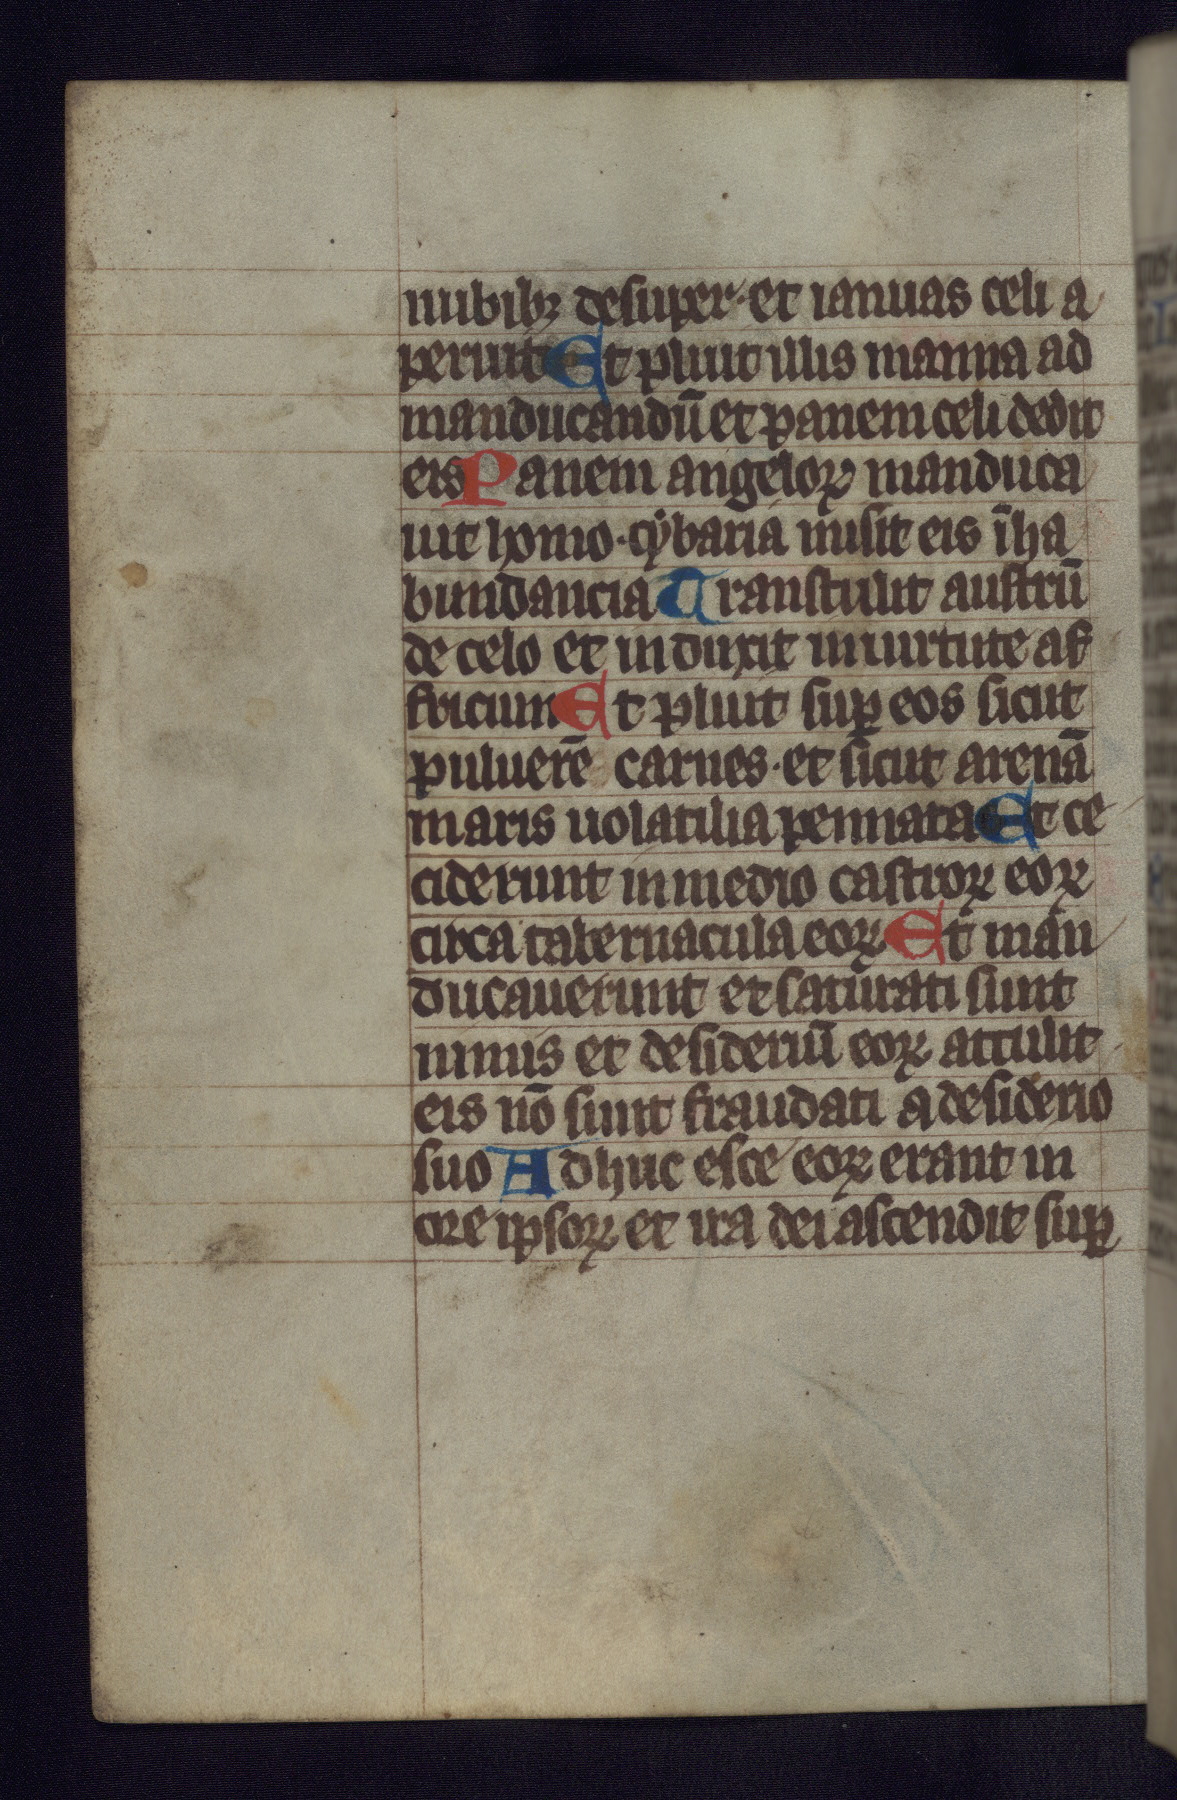 nubibꝫ desuper· et ianuas celi a
peruit Et pluit illis manna ad
manducandū et panem celi dedit
eis Panem angeloꝝ manduca
uit homo· cẏbaria misit eis ī ha
bundancia Transtulit austrū
de celo et induxit in uirtute af
fricum Et pluit suꝑ eos sicut
puluerē carnes· et sicut arenā
maris uolatilia pennata Et ce
ciderunt in medio castroꝝ eoꝝ
circa tabernacula eoꝝ Et man
ducauerunt et saturati sunt
nimis et desideriū eoꝝ attulit
eis nō sunt fraudati a desiderio
suo Adhuc esce eoꝝ erant in
ore ipsoꝝ et ira dei ascendit suꝑ